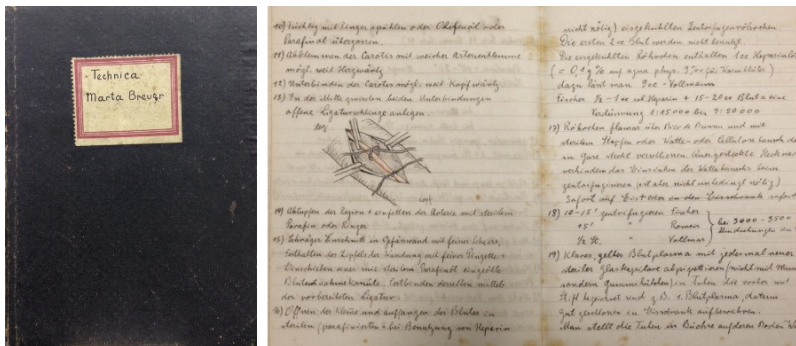 - Technica
Marta Breuer
10) Tüchtig mit Ringer spühlen oder Olefinöl oder
Parafinöl übergiessen.
11) Abklemmen der Carotis mit weicher Arterienklemme
mögl. weit Herzwärts
12) Unterbinden der Carotis mögl. weit Kopfwärts
13) In der Mitte zwischen beiden Unterbindungen
offene Ligaturschlinge anlegen.
14) Abtupfen der Region + einfetten der Arterie mit sterilem
Parafin oder Ringer
15) Schräger Einschnitt in Gefässwand mit feiner Schere,
Festhalten des Zipfels der Wandung mit feiner Pinzette +
Einschieben einer mit sterilem Parafinöl eingeölte
Blutentnahmekanüle, Festbinden derselben mittels
der vorbereiteten Ligatur.
16) Öffnen der Klemme und auffangen des Blutes in
sterilen (parafinierten + bei Benutzung von Heparin
nicht nötig) eisgekühlten Zentrifugenröhrchen.
Die ersten 2 cc Blut werden nicht benutzt.
Die eisgekühlten Röhrchen enthalten 1 cc Heparinlös
(= 0,1 g % auf aqua phys. 9 ‰ für Warmblüter)
dazu lässt man 9 cc - Vollmann
Fischer 1/2 - 1 cc sol. Heparin + 15-20 cc Blut = eine
Verdünnung 1:15000 bis 1:20000
17) Röhrchen flamar über Bico de Bunsen und mit
sterilem Stopfen oder Watte- oder Cellulosebausch
in Gaze steckt verschliessen.
verhindern das Einsinken des Wattebauschs beim
zentrifugieren, ist aber nicht unbedingt nötig)
Sofort auf Eis + oder in den Eisschrank
18) 10-15' zentrifugieren Fischer
15' " Romeis
1/2 St. " Vollmar
bei 3000 - 3500
Umdrehungen
19) Klares, gelbes Blutplasma mit jedesmal neuer
steriler Glaspipette abpipettieren (nicht mit Mund
sondern Gummihütchen) in Tuben die vorher mit
Stift bezeichnet sind z.B. 1. Blutplasma, datum
gut geschlossen in Eisschrank aufbewahren.
Man stellt die Tuben in Büchse auf deren Boden